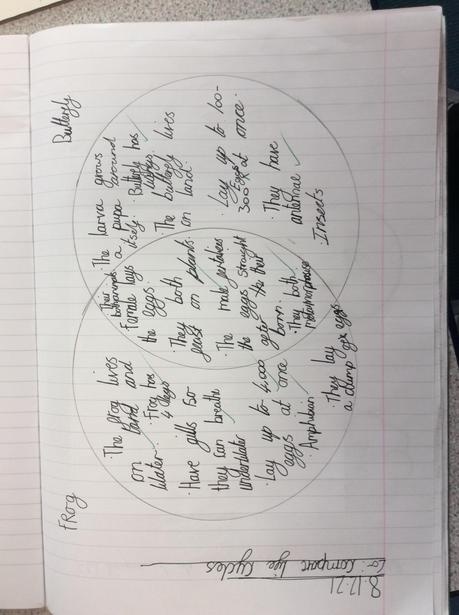 LO: Compare life cycles
Frog
The frog lives
on land and
Water.
· Frog has
4 legs
· Have gills so
they can breathe
underwater
· Lay up to 4,000
eggs at once
· Amphibian
· They lay
a clump of eggs
Female lays
the eggs.
· They both
feast on plants.
· The male fertilises
the eggs straight
after the their
born.
· They both
metamorphosise
Butterfly
The larva grows
a pupa around
itself!
· Butterfly has
wings.
· The butterfly lives
on land.
· Lay up to 100-
300 eggs at once.
· They have
antennae
Insects